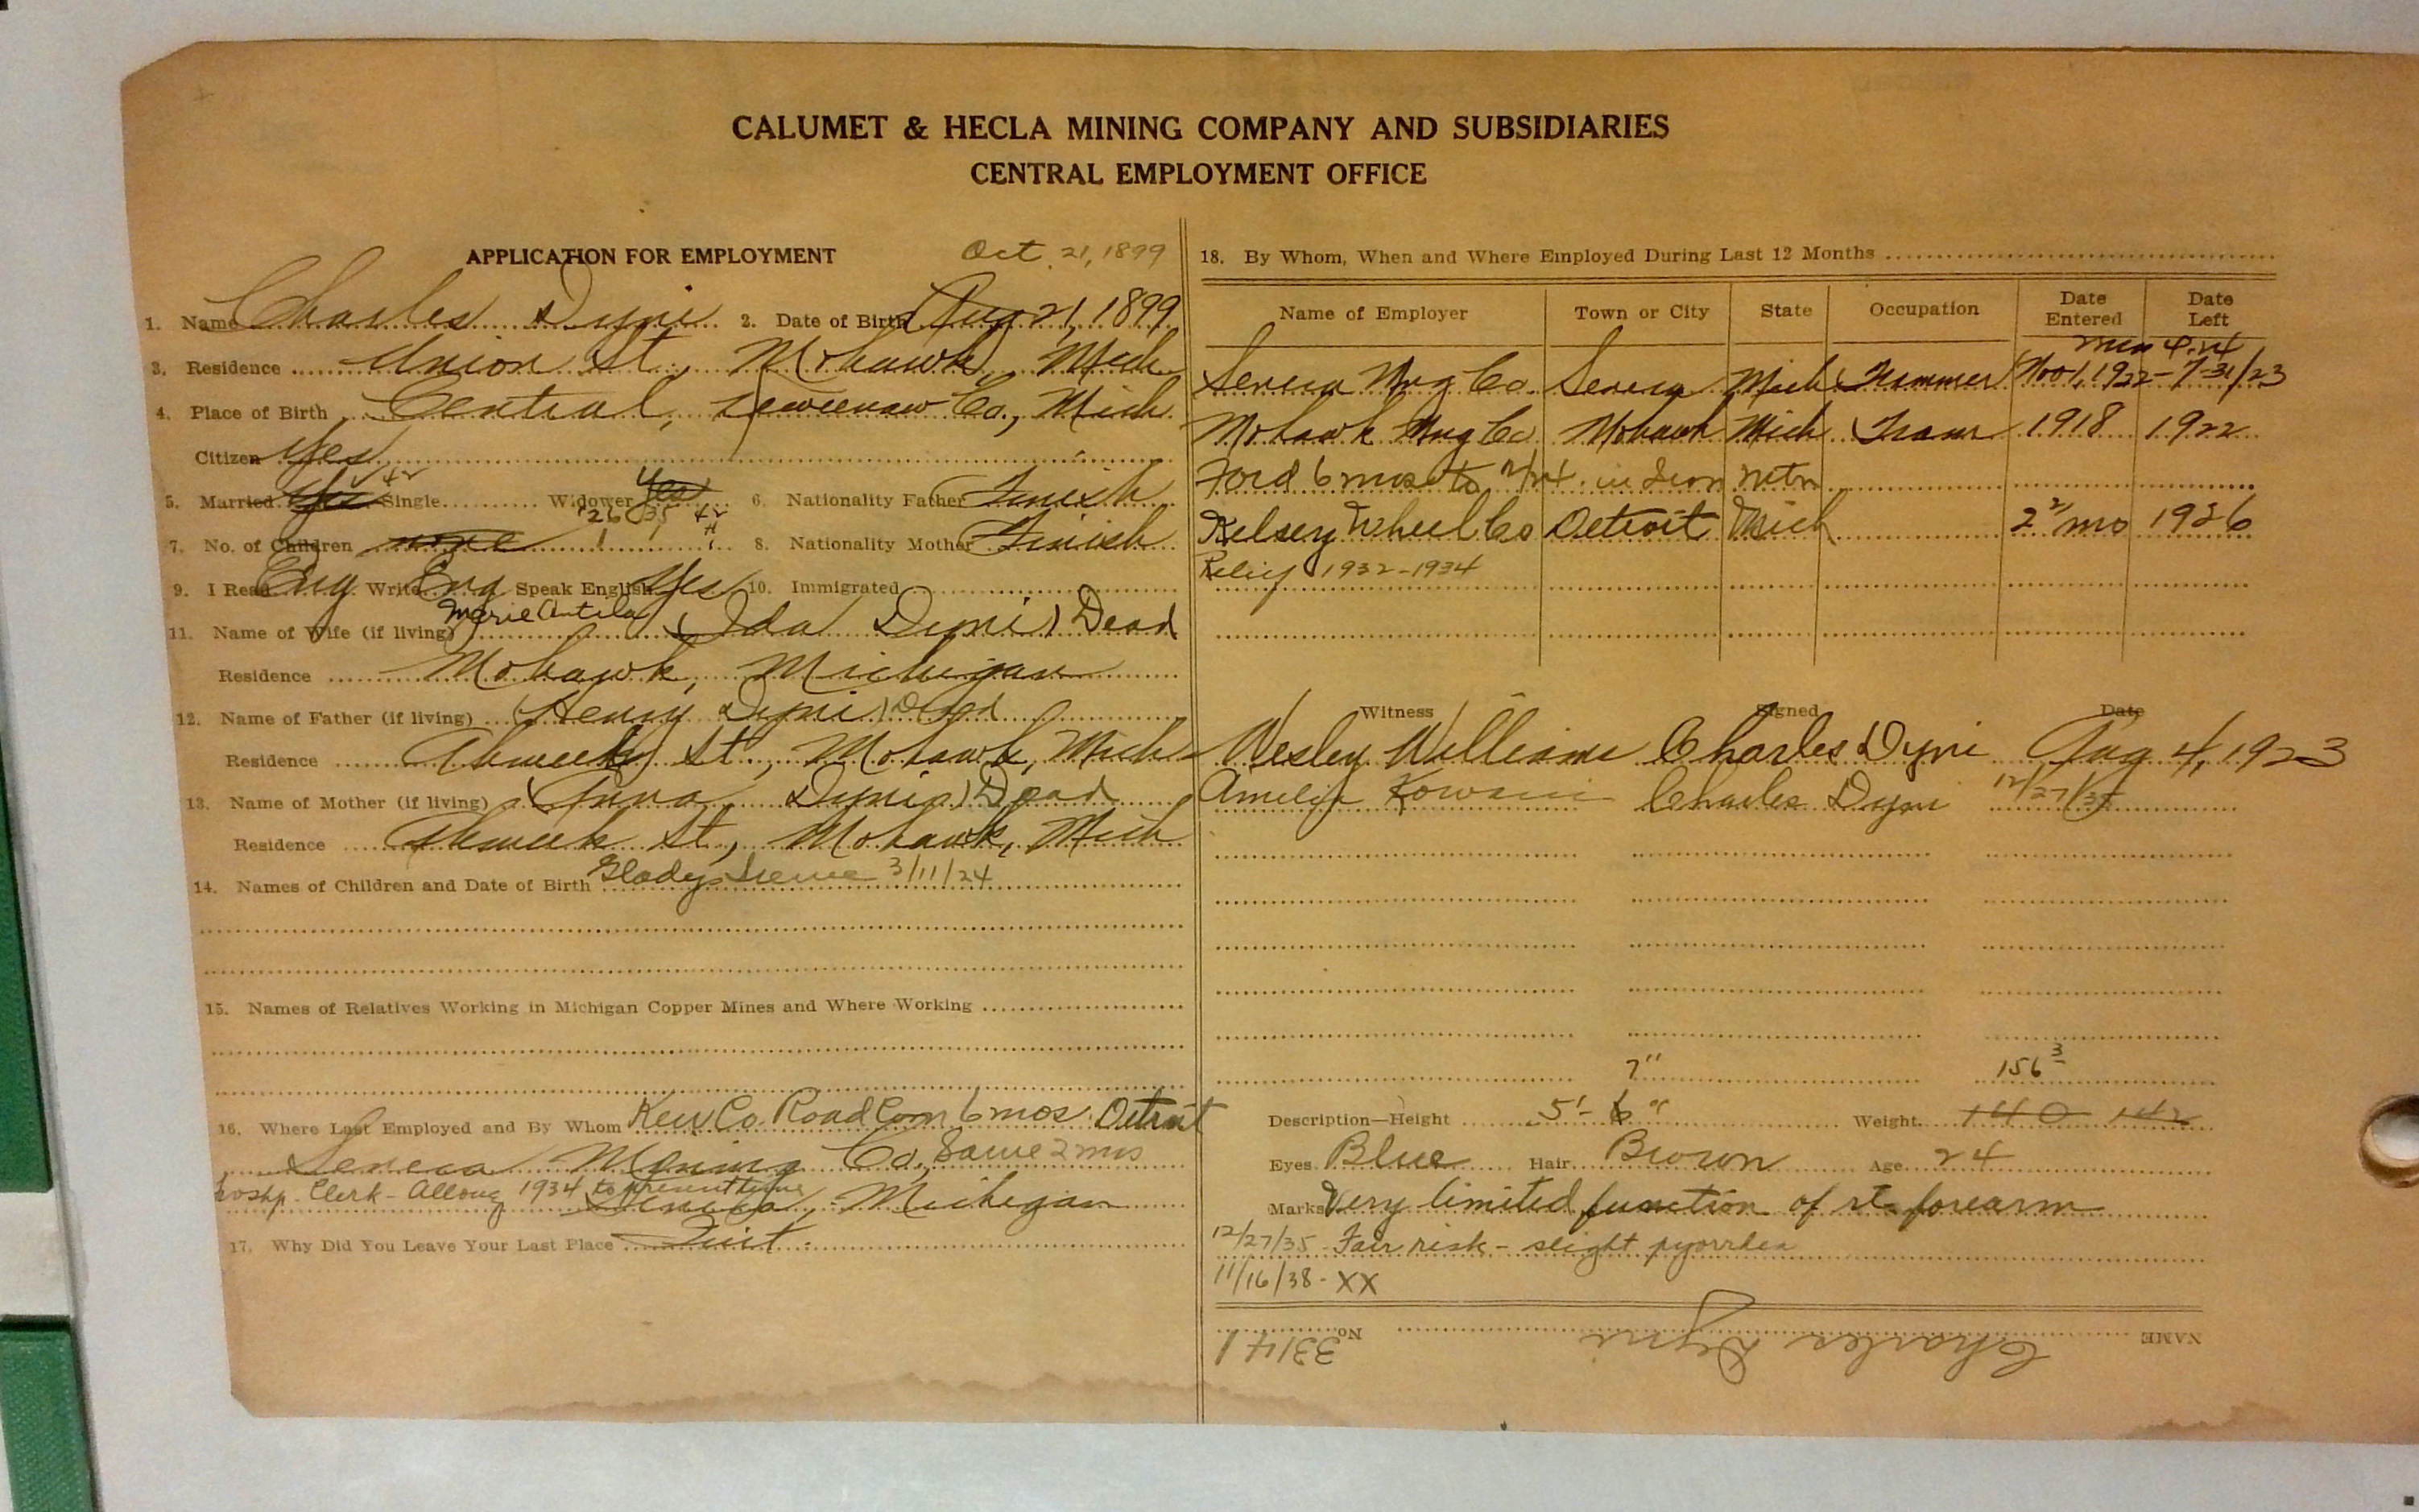 CALUMET & HECLA MINING COMPANY AND SUBSIDIARIES
CENTRAL EMPLOYMENT OFFICE
APPLICATION FOR EMPLOYMENT
Oct. 21, 1899
1. Name Charles Dyni 2. Date of Birth Aug 21, 1899
3. Residence Union St., Mohawk, Mich
4. Place of Birth Central, Keweenaw Co., Mich
Citizen Yes
42
5. Married Yes Single Widower Yes 6. Nationality Father Finish
'26 35 42
7. No. of Children none 1 1 8. Nationality Mother Finish
9. I Read Eng Write Eng Speak English Yes 10. Immigrated
Marie Antila
11. Name of Wife (if living) (Ida Dyni) Dead
Residence Mohawk, Michigan
12. Name of Father (if living) (Henry Dyni) Dead
Residence Ahmeek St., Mohawk, Mich
13. Name of Mother (if living) (Anna Dyni) Dead
Residence Ahmeek St., Mohawk, Mich
14. Names of Children and Date of Birth Gladys Irene 3/11/24
15. Names of Relatives Working in Michigan Copper Mines and Where Working
16. Where Last Employed and By Whom Kew Co Road Com 6 mos. Detroit
Seneca Mining Co., Same 2 mos
Clerk - Allouez 1934 to present time
Seneca, Michigan
17. Why Did You Leave Your Last Place Quit.
18. By Whom, When and Where Employed During Last 12 Months
Name of Employer Town or City State Occupation Date Entered Date Left
Seneca Mng Co. Seneca Mich Trammer Nov 1, 1922 - 7-31/23
Mohawk Mng Co Mohawk Mich Tram 1918 1922
Ford 6 mos to in Iron Mtn
Kelsey Wheel Co Detroit Mich 2 1/2 mo 1926
Relief 1932-1934
Witness Signed Date
Wesley Williams Charles Dyni Aug 4, 1923
Amelia Charles Dyni 12/27/35
7" 156 3
Description—Height 5'- 6" Weight 140 142
Eyes Blue Hair Brown Age 24
Marks Very limited function of rt. forearm
12/27/35 - Fair risk - slight pyorrhea
11/16/38 - XX
NAME Charles Dyni No. 33141